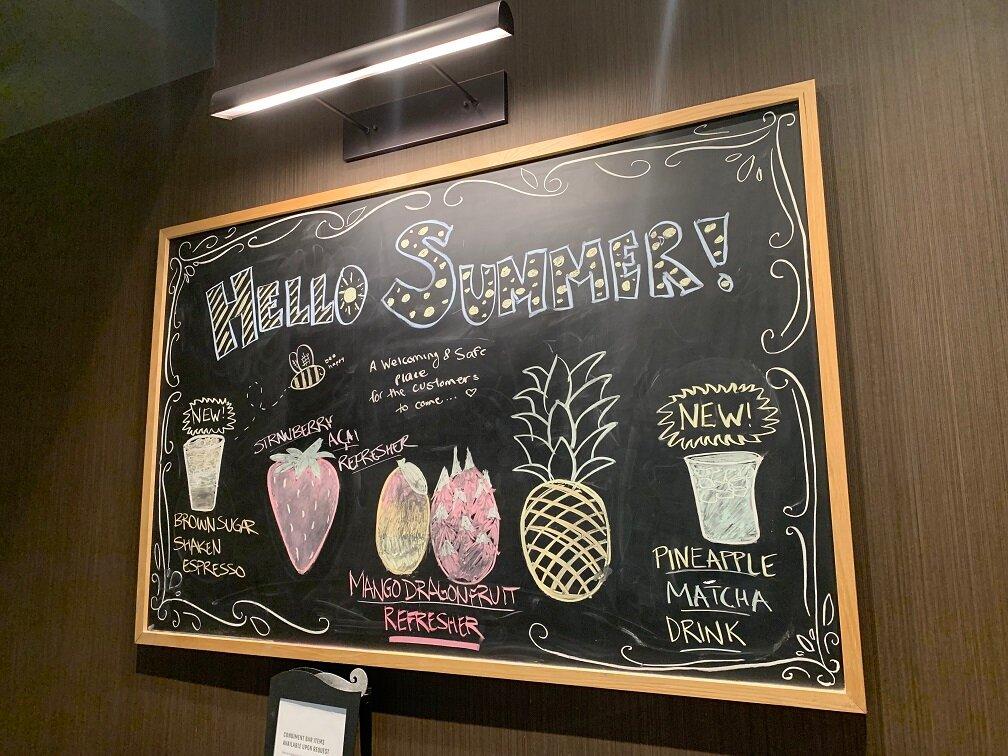 HELLO SUMMER!
bee
happy
A Welcoming & Safe
Place
for the customers
to come... ♡
NEW!
BROWN SUGAR
SHAKEN
ESPRESSO
STRAWBERRY
AÇAI
REFRESHER
MANGO DRAGONFRUIT
REFRESHER
NEW!
PINEAPPLE
MATCHA
DRINK
CONDIMENT BAR ITEMS
AVAILABLE UPON REQUEST